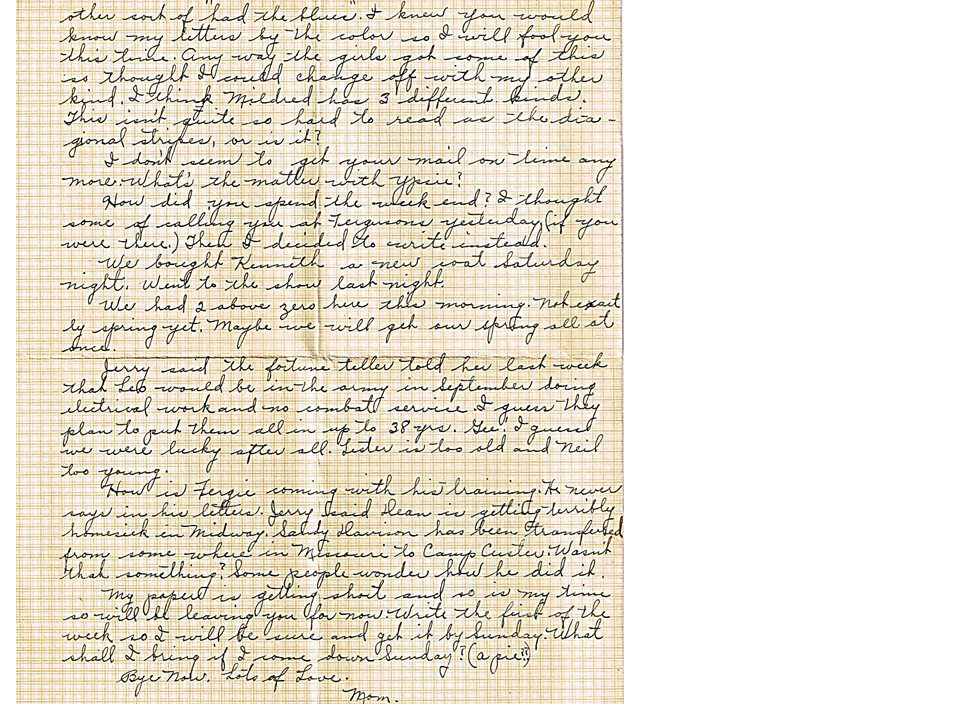 other sort of "had the blues". I knew you would
know my letters by the color so I will fool you
this time. Any way the girls got some of this
so thought I could change off with my other
kind. I think Mildred has 3 different kinds.
This isn't quite so hard to read as the dia-
gional stripes, or is it?
I don't seem to get your mail on time any
more. What's the matter with Ypsie?
How did you spend the week end? I thought
some of calling you at Fergusons yesterday, (if you
were there.) Then I decided to write instead.
We bought Kenneth a new coat Saturday
night. Went to the show last night.
We had 2 above zero here this morning. Not exact
ly spring yet. Maybe we will get our spring all at
once.
Jerry said the fortune teller told her last week
that Leo would be in the army in September doing
electrical work and no combat service. I guess they
plan to put them all in up to 38 yrs. Gee! I guess
we were lucky after all. Lister is too old and Neil
too young.
How is Fergie coming with his training. He never
says in his letters. Jerry said Dean is getting terribly
homesick in Midway. Sandy Davison has been transfered
from some where in Missouri to Camp Custer. Wasn't
that something? Some people wonder how he did it.
My paper is getting short and so is my time
so will be leaving you for now. Write the first of the
week so I will be sure and get it by Sunday. What
shall I bring if I come down Sunday? (a pie??)
Bye Now. Lots of Love.
Mom.